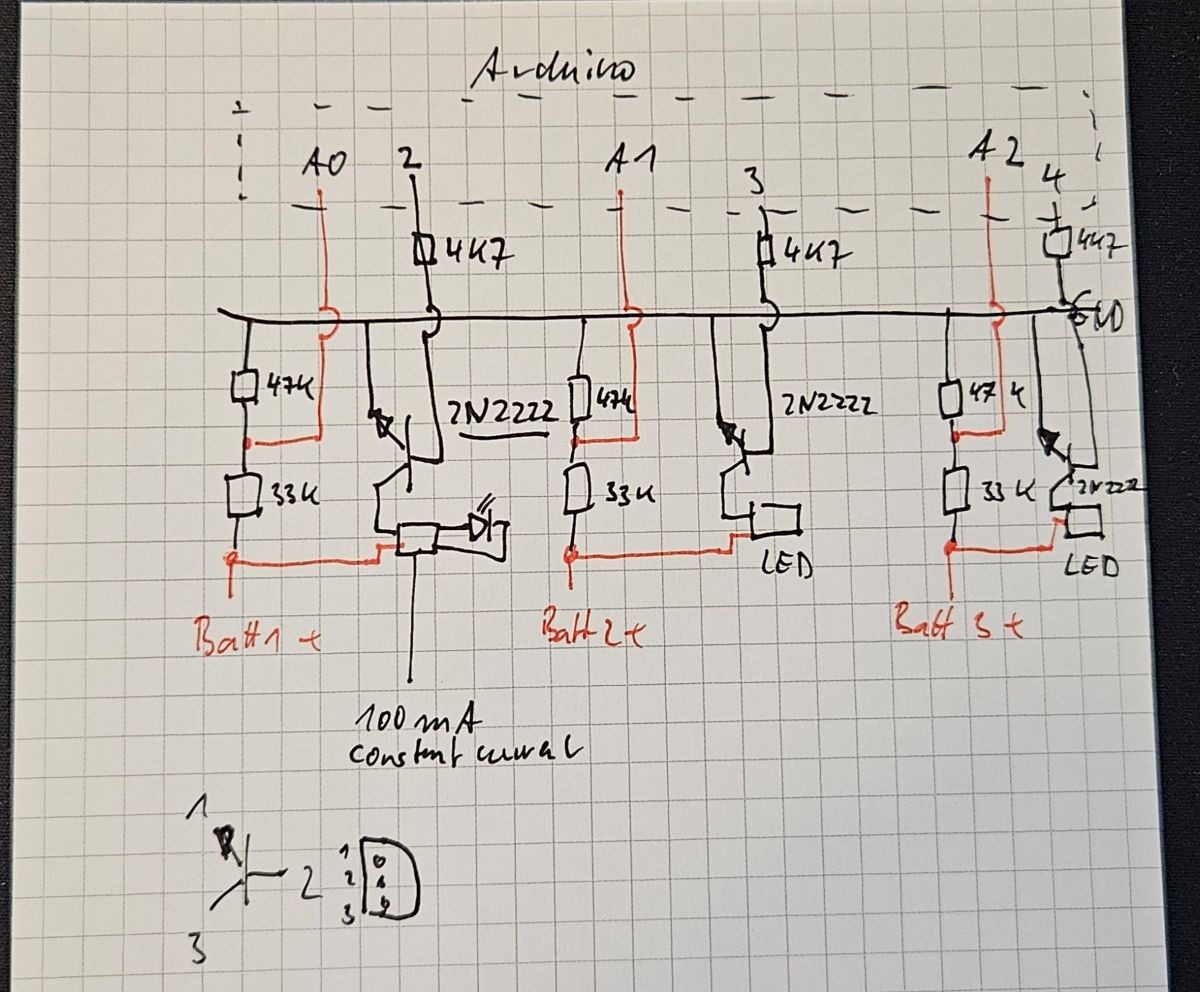 Arduino
A0 2 A1 3 A2 4
4K7 4K7 4K7
GND
47K 2N2222 47K 2N2222 47K
33K 33K 33K 2N2222
LED LED
Batt 1 + Batt 2 + Batt 3 +
100 mA
constant
1
2 1
2
3
3